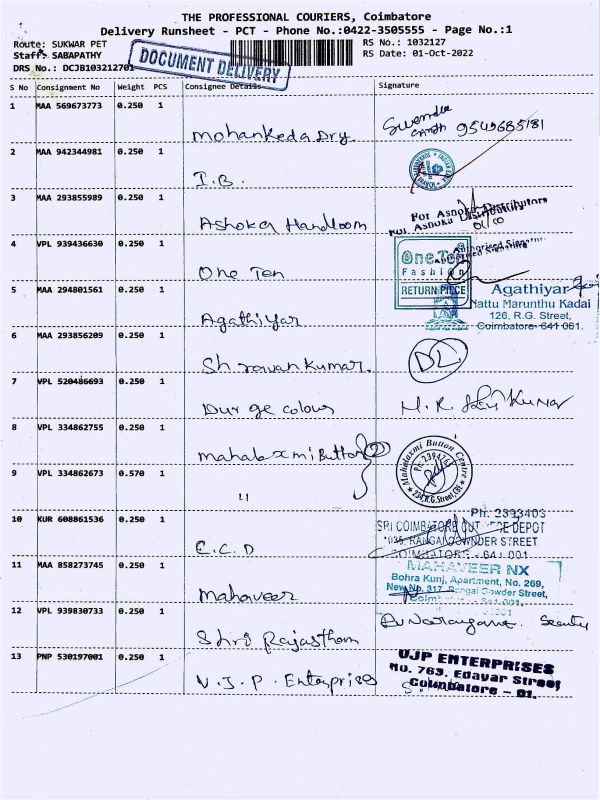 THE PROFESSIONAL COURIERS, Coimbatore
Delivery Runsheet - PCT - Phone No.:0422-3505555 - Page No.:1
Route: SUKWAR PET
RS No.: 1032127
Staff: SABAPATHY
RS Date: 01-Oct-2022
DRS No.: DCJB103212701
DOCUMENT DELIVERY
S No Consignment No Weight PCS Consignee Details Signature
1 MAA 569673773 0.250 1
Mohankeda Dry
9549685181
2 MAA 942344981 0.250 1
I.B.
3 MAA 293855989 0.250 1
Ashoka Handloom
For Ashoka Distributors
Authorised Signatory
4 VPL 939436630 0.250 1
One Ten
One Ten
Fashion
RETURN PIECE
5 MAA 294801561 0.250 1
Agathiyar
Agathiyar
Nattu Marunthu Kadai
126, R.G. Street,
Coimbatore- 641 001.
6 MAA 293856209 0.250 1
Shravan Kumar.
DL
7 VPL 520486693 0.250 1
Durge colour
M.R. Kumar
8 VPL 334862755 0.250 1
mahalaxmi Button 2
Mahalaxmi Button Centre
234, R.G. Street, CBE
9 VPL 334862673 0.570 1
"
10 KUR 608861536 0.250 1
C.C.D
Ph: 2393403
SRI COIMBATORE CUT PIECE DEPOT
RANGAI GOWNDER STREET
COIMBATORE - 641 001
11 MAA 858273745 0.250 1
Mahaveer
MAHAVEER NX
Bohra Kunj, Apartment, No. 269,
New No. 317, Rangai Gowder Street,
12 VPL 939830733 0.250 1
Shri Rajasthan
13 PNP 530197001 0.250 1
V.J.P. Enterprises
UJP ENTERPRISES
No. 763, Edayar Street
Coimbatore - 01.